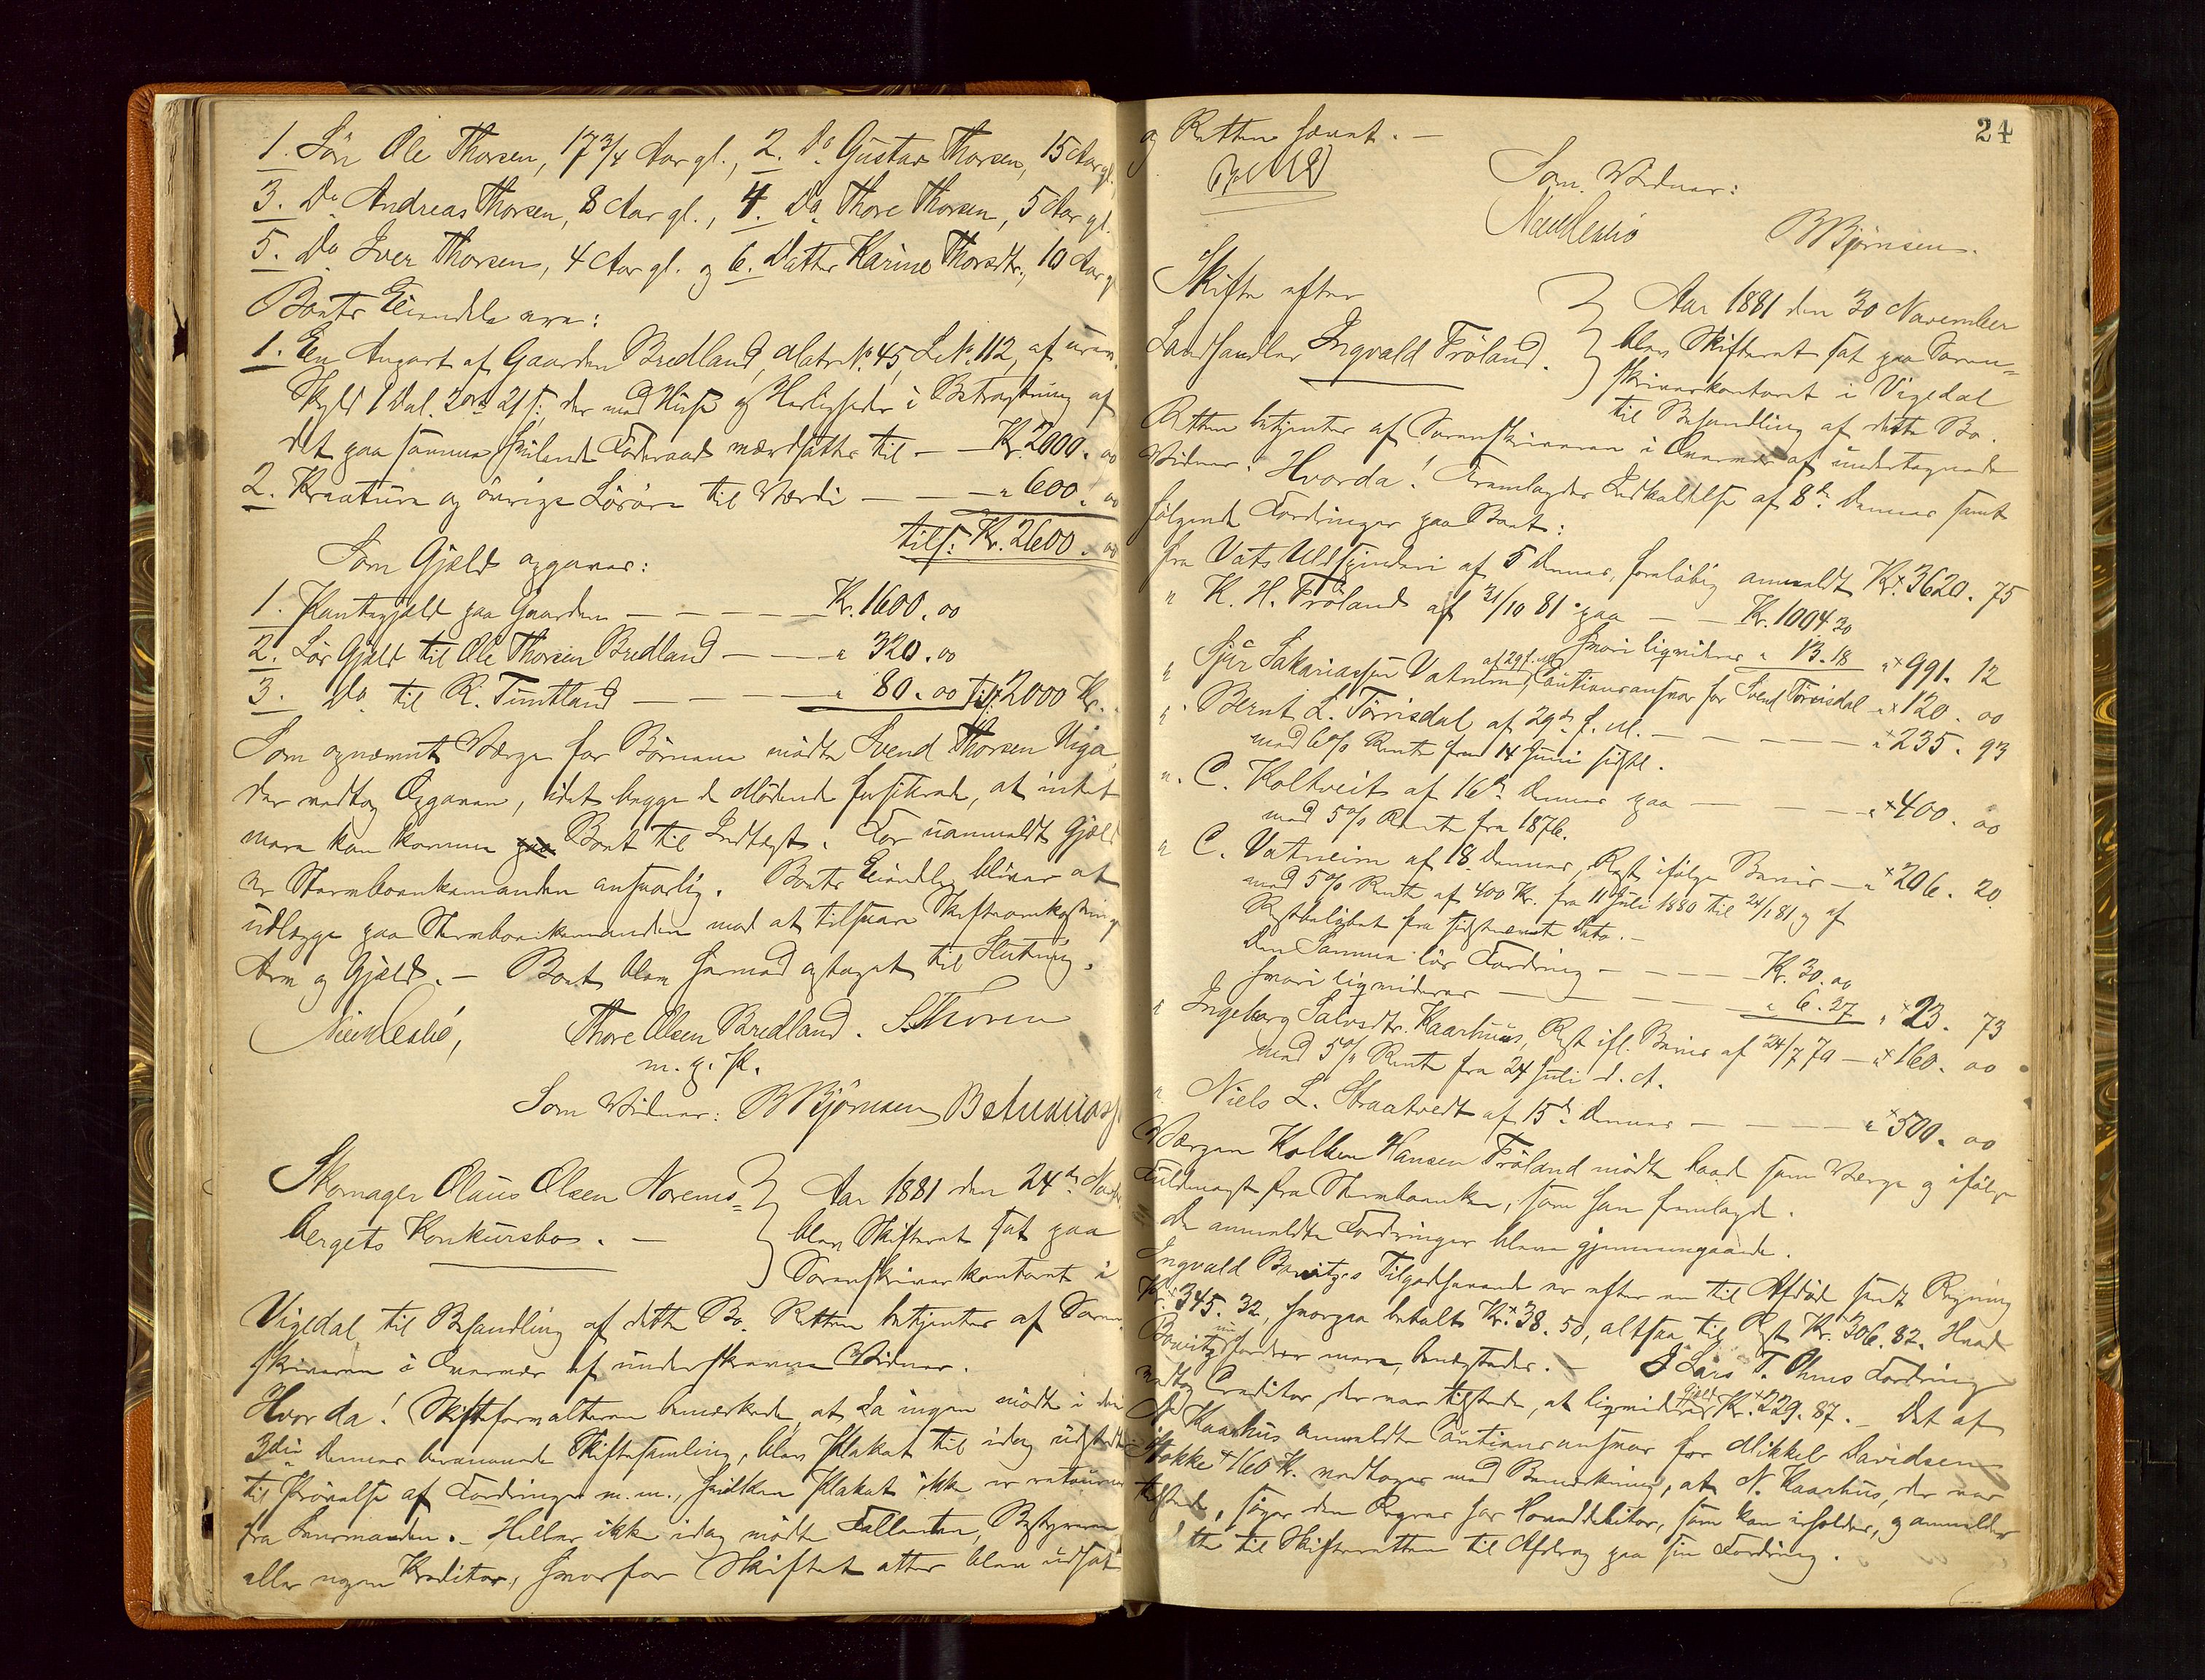 1. Søn Ole Thorsen, 17 3/4 Aar gl., 2. Do Gustav Thorsen, 15 Aar gl.
3. Do Andreas Thorsen, 8 Aar gl., 4. Do Thore Thorsen, 5 Aar gl.
5. Do Iver Thorsen, 4 Aar gl. og 6. Datter Karine Thorsdtr., 10 Aar g
Boets Eiendele ere:
1. En Anpart af Gaarden Bredland, Matr. No. 45, L. No. 112, af urev.
Skyld 1 Dal. 2 ort 21 s: der med Huse og Herligheder i Betragtning af
det paa samme hvilende Føderaad værdsættes til — Kr. 2000. 00
2. Kreature og øvrige Løsøre til Værdi — — — " 600. 00
tils: Kr. 2600. 00
Som Gjæld opgaves:
1. Pantegjæld paa Gaarden — — — Kr. 1600. 00
2. Løs Gjæld til Ole Thorsen Bredland — — " 320. 00
3. Do til R. Tuntland — — — " 80. 00 tils. 2000 Kr.
Som opnævnt Værge for Børnene mødte Svend Thorsen Viga
der vedtog Opgaven, idet begge de Mødende forsikrede, at intet
mere kan komme paa Boet til Indtægt. For uanmeldt Gjæld
er Stervboenkemanden ansvarlig. Boets Eiendele bliver at
udlægge paa Stervboenkemanden mod at tilsvare Skifteomkostninge
Arv og Gjæld. — Boet blev hermed optaget til Slutning.
Thore Olsen Bredland. S. Thorsen
m. p. P.
Som Vidner: B Bjørnsen
Skomager Olaus Olsen Norems=
bergets Konkursbo. —
Aar 1881 den 24de Novbr
blev Skifteret sat paa
Sorenskriverkontoret i
Vigedal til Behandling af dette Bo. Retten betjentes af Soren
skriveren i Overvær af underskrevne Vidner.
Hvorda! Skifteforvalteren bemærkede, at da ingen mødte i den
3die dennes berammede Skiftesamling, blev Plakat til idag udstedt
til Prøvelse af Fordringer m. m., hvilken Plakat ikke er retourner
fra Lensmanden. — Heller ikke idag mødte Fallenten, Bestyreren
eller nogen Kreditor, hvorfor Skiftet atter blev udsat
24
og Retten hævet. —
Som Vidner:
B Bjørnsen.
Skifte efter
Landhandler Ingvald Frøland.
Aar 1881 den 30 November
blev Skifteret sat paa Soren=
skriverkontoret i Vigedal
til Behandling af dette Bo.
Retten betjentes af Sorenskriveren i Overvær af undertegnede
Vidner. Hvorda! Fremlagdes Indkaldelse af 8de dennes samt
følgende Fordringer paa Boet:
fra Vats Uldspinderi af 5 dennes, foreløbig anmeldt Kr. 3620. 75
" K. H. Frøland af 31/10 81 paa — — Kr. 1004 30
hvori ligvideres " 13. 18 " 991. 12
" Sjur Sakariassen Vatneim, af 29 f. M. Cautionsansvar for Svend Tørrisdal " 120. 00
" Bernt L. Tørrisdal af 29de f. M. — — — — " 235. 93
med 6% Rente fra 14 Juni sidstl.
" C. Koltveit af 16de dennes paa — — — " 400. 00
med 5% Rente fra 1876.
" C. Vatneim af 18 dennes, Rest ifølge Bevis — " 206. 20
med 5% Rente af 400 Kr. fra 11 Juli 1880 til 24/1 81, og af
Restbeløbet fra sidstnævnte Dato. —
den Samme løs Fordring — — — Kr. 30. 00
hvori ligvideres — — — " 6. 27 " 23. 73
" Ingeborg Salvsdtr. Kaarhuus, Rest ifl. Bevis af 24/7 79 — " 160. 00
med 5% Rente fra 24 Juli d. A.
" Niels L. Straatvedt af 15de dennes — — — " 500. 00
Værgen Kolben Hansen Frøland mødte baade som Værge og ifølge
Fuldmagt fra Stervboenken, som han fremlagde.
De anmeldte Fordringer bleve gjennemgaaede.
Ingvald Bowitzes Tilgodehavende er efter en til Afdøde sendt Regning
Kr. 345. 32, hvorpaa betalt Kr. 38. 50, altsaa til Rest Kr. 306. 82. Hvad
Bowitz nu fordrer mere, benegtedes. — I Lars T. Ohms Fordring
vedtog Creditor, der var tilstede, at ligvidere Gjæld Kr. 229. 87. — Det af
N. Kaarhus anmeldte Cautionsansvar for Mikkel Davidsen
Stokke 160 Kr. vedtoges med Bemærkning, at N. Kaarhus, der var
tilstede, søger den Regres hos Hoveddebitor, som kan erholdes, og anmelder
dette til Skifteretten til Afdrag paa sin Fordring.